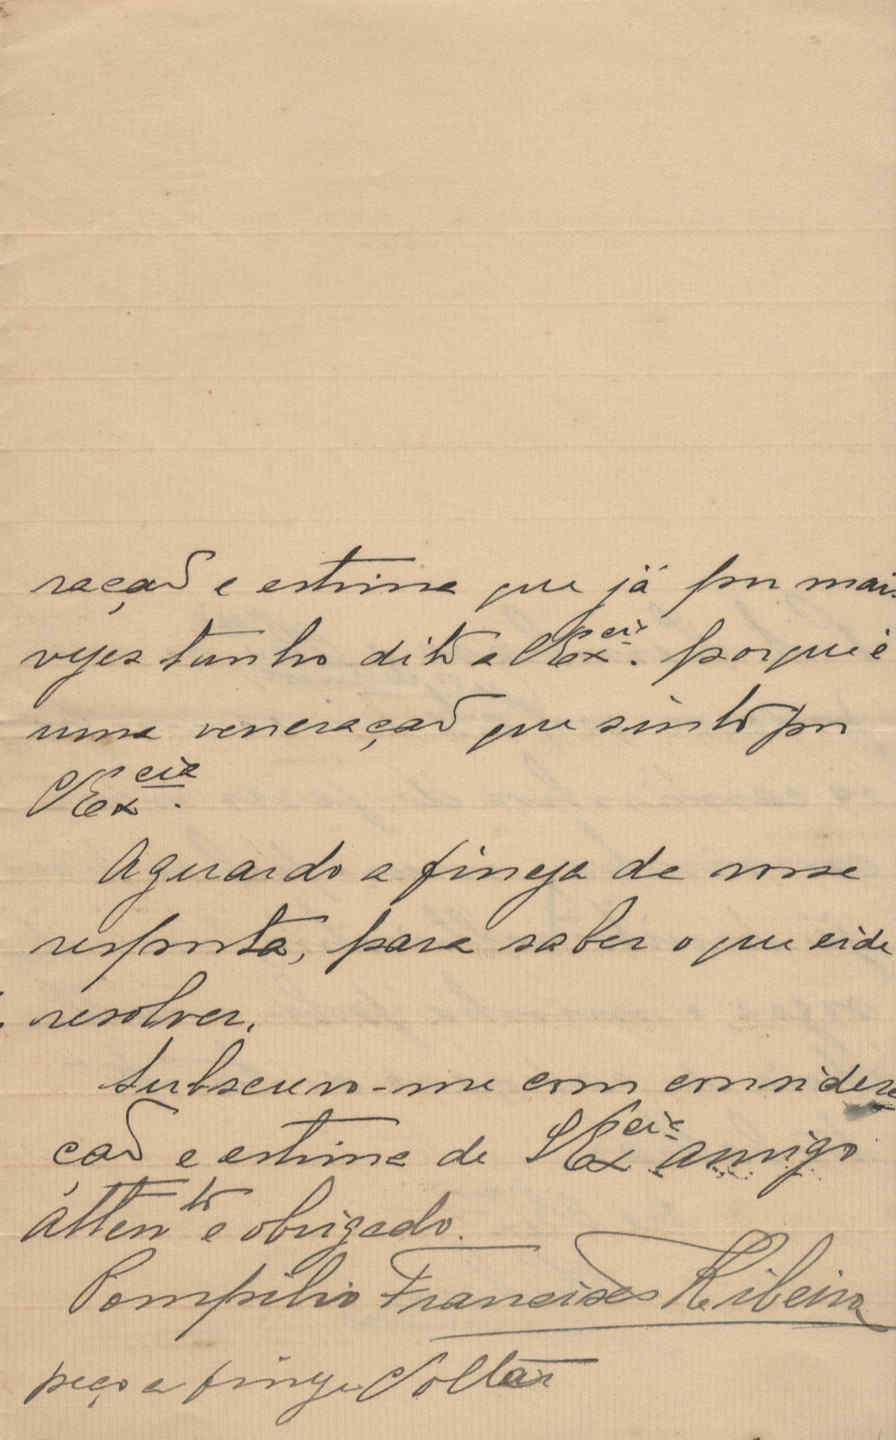 ração e estima que já por mais
vezes tenho dito a VEx.cia. porque é
uma veneração que sinto por
VEx.cia.
Aguardo a fineza de vossa
resposta, para saber o que
resolver.
Subscrevo-me com considera
ção e estima de VEx.cia amigo
Atten.to e obrigado.
Pompilio Francisco Ribeiro
peço a fineza Voltar